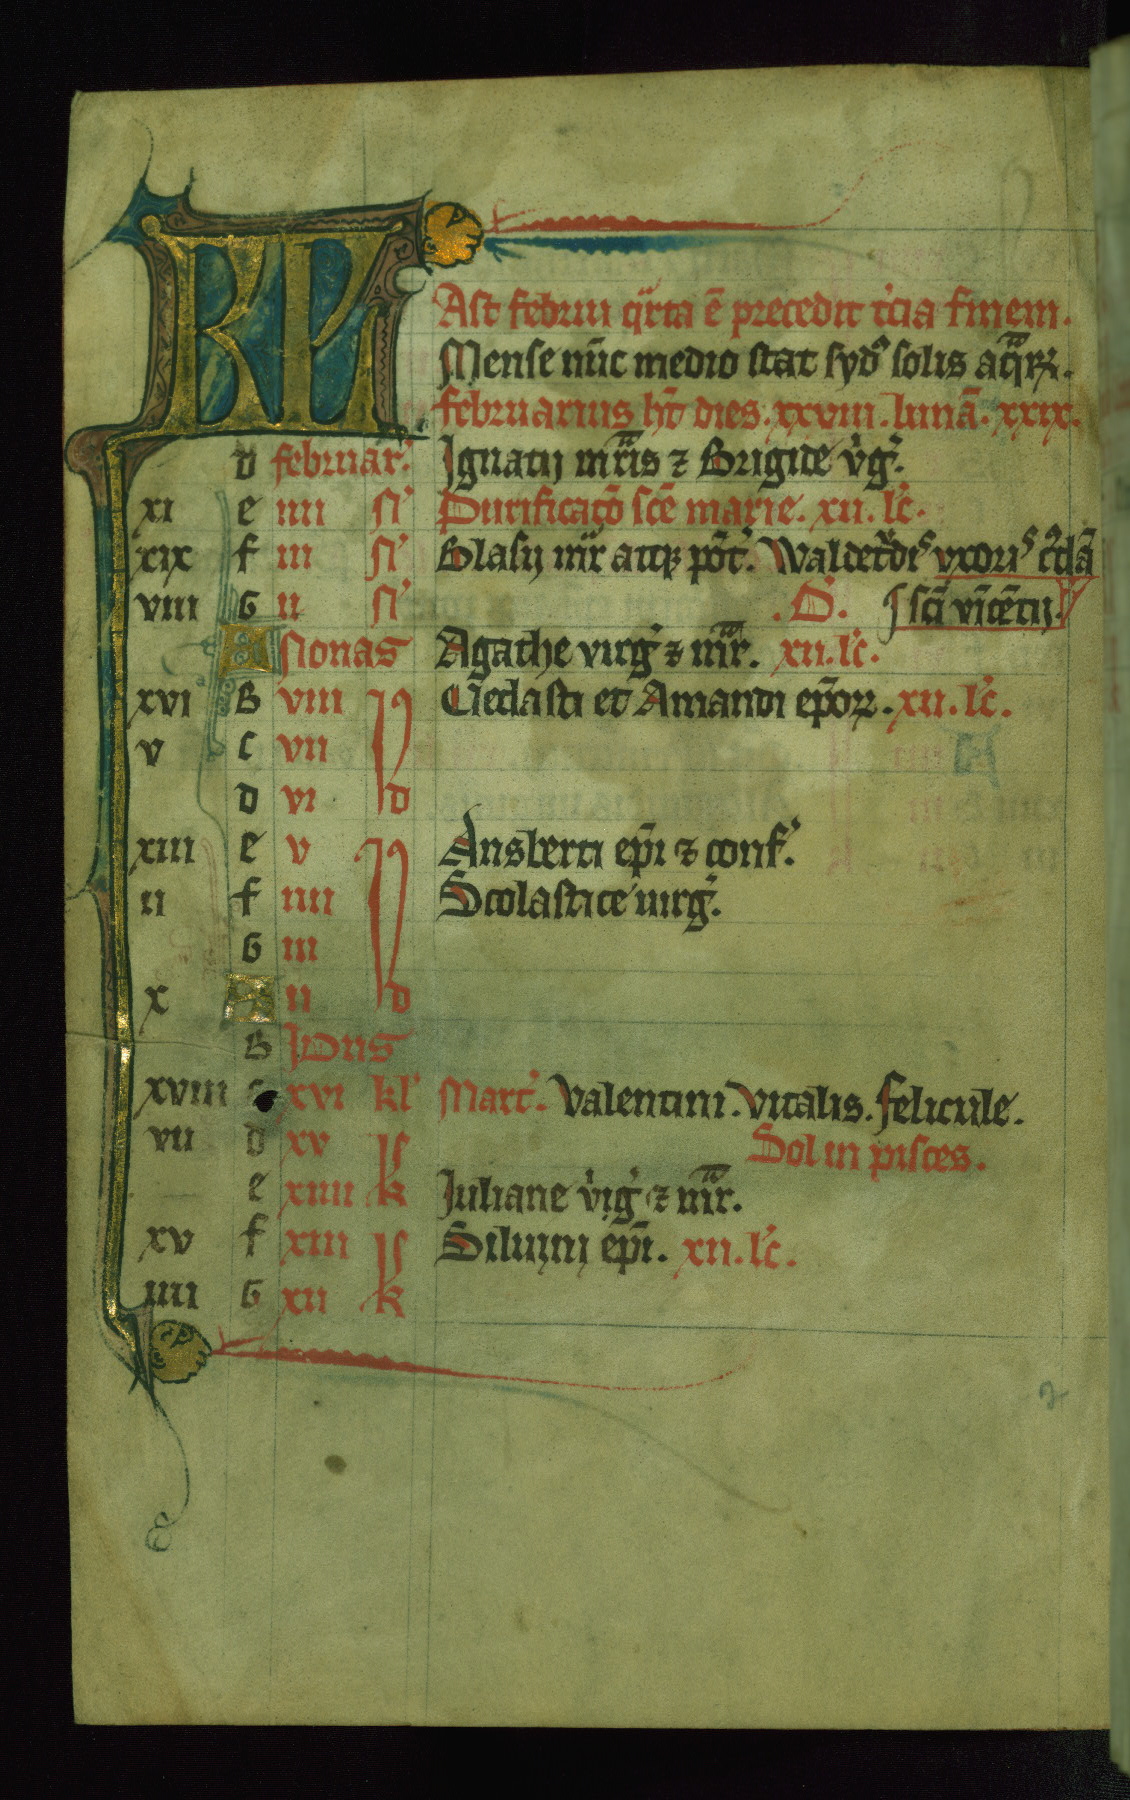 KL
Ast februi qrta ē precedit tcia finem.
Mense nūc medio stat syd' solis aqrii.
februarius ht dies. xxviii. lunā. xxix.
d februar' Ignatij mris ⁊ Brigide v'g'.
xi e iiii n' Purificaco sce marie. xii. lc.
xix f iii n' Blasij mr atq; pōt'. Waldetrdis vxoris
viii G ii n' .O. sci vincētij.
A Nonas Agathe virg' ⁊ mr. xii. lc.
xvi B viii Vedasti et Amandi epor. xii. lc.
v c vii
d vi d
xiii e v Ansberti epi ⁊ conf'.
ii f iiii Scolastice uirg'.
G iii
x A ii d
B Idus
xviii c xvi kl' Marc'. Valentini. Vitalis. felicule.
vii d xv Sol in pisces.
e xiiii k Juliane v'ig' ⁊ mr.
xv f xiii Siluini epi. xii. lc.
iiii G xii k
2